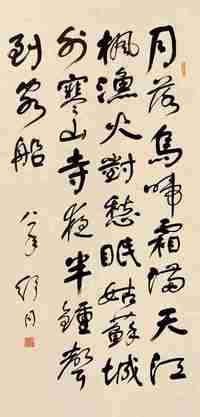 月落烏啼霜滿天江
楓漁火對愁眠姑蘇城
外寒山寺夜半鐘聲
到客船
舒同